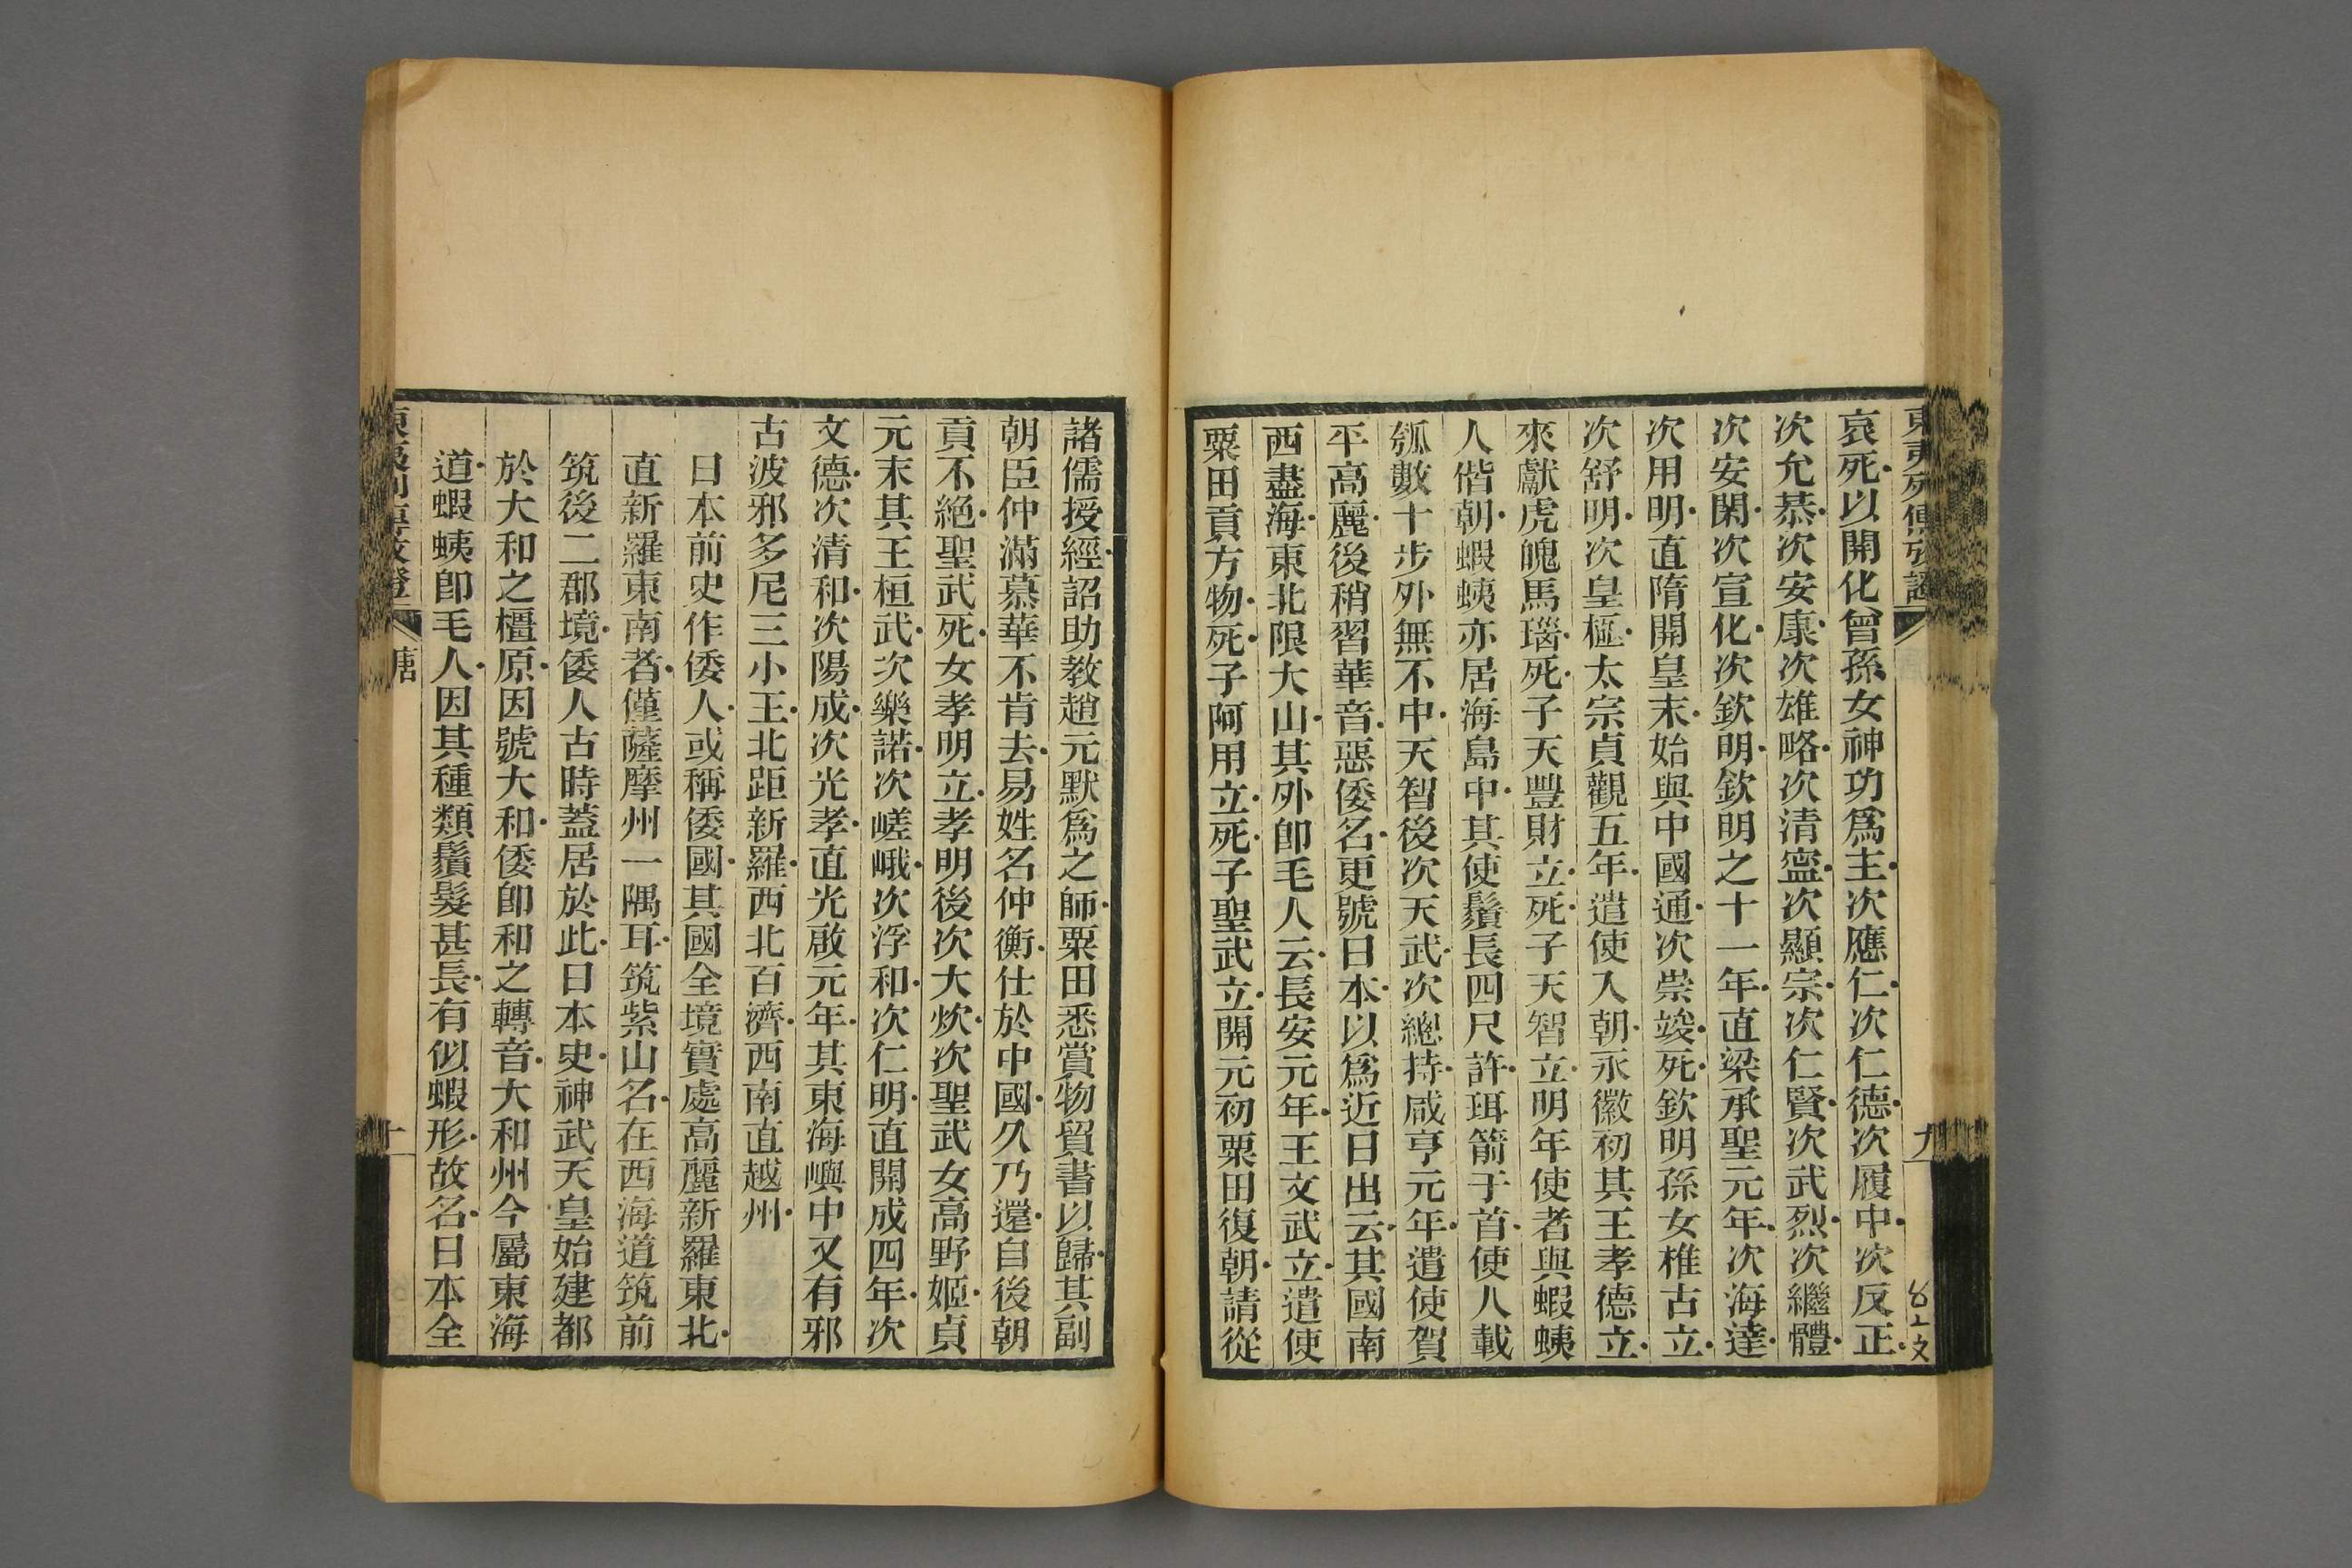 哀死以開化曾孫女神功爲主次應仁次仁德次履中次反正
次允恭次安康次雄略次清寍次顯宗次仁賢次武烈次繼體
次安閑次宣化次欽明欽明之十一年直梁承聖元年次海達
次用明直隋開皇末始與中國通次崇竣死欽明孫女椎古立
次舒明次皇極太宗貞觀五年遣使入朝永徽初其王孝德立
來獻虎魄馬瑙死子天豐財立死子天智立明年使者與蝦蛦
人偕朝蝦蛦亦居海島中其使鬚長四尺許珥箭于首使人載
瓠數十步外無不中天智後次天武次總持咸亨元年遣使賀
平高麗後稍習華音惡倭名更號日本以爲近日出云其國南
西盡海東北限大山其外卽毛人云長安元年王文武立遣使
粟田貢方物死子阿用立死子聖武立開元初粟田復朝請從
諸儒授經詔助教趙元默爲之師粟田悉賞物貿書以歸其副
朝臣仲滿慕華不肯去易姓名仲衡仕於中國久乃還自後朝
貢不絕聖武死女孝明立孝明後次大炊次聖武女高野姬貞
元末其王桓武次樂諾次嵯峨次浮和次仁明直開成四年次
文德次清和次陽成次光孝直光啟元年其東海嶼中又有邪
古波邪多尼三小王北距新羅西北百濟西南直越州
日本前史作倭人或稱倭國其國全境實處高麗新羅東北
直新羅東南者僅薩摩州一隅耳筑紫山名在西海道筑前
筑後二郡境倭人古時蓋居於此日本史神武天皇始建都
於大和之橿原因號大和倭卽和之轉音大和州今屬東海
道蝦蛦卽毛人因其種類鬚髮甚長有似蝦形故名日本全